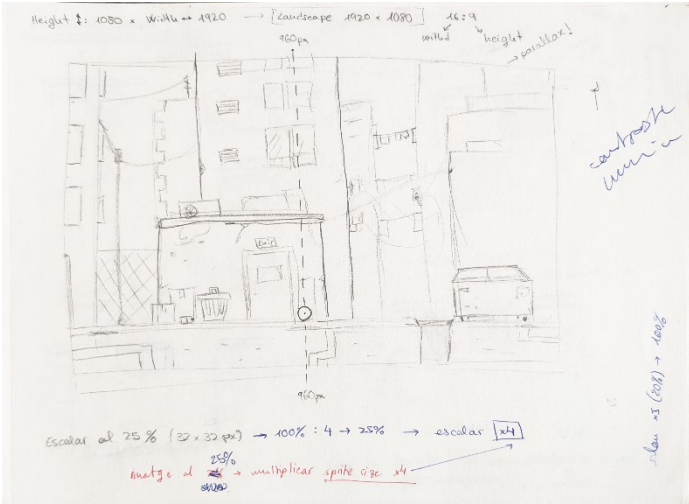 Height ↕: 1080 × Width ↔ 1920 → [Landscape 1920 × 1080] 16:9
width height
→ parallax!
960px
Exit
960px
contraste
Escalar al 25% (32×32 px) → 100% : 4 → 25% → escalar x4
25%
imatge al → multiplicar sprite size x4
x5 (20%) → 100%